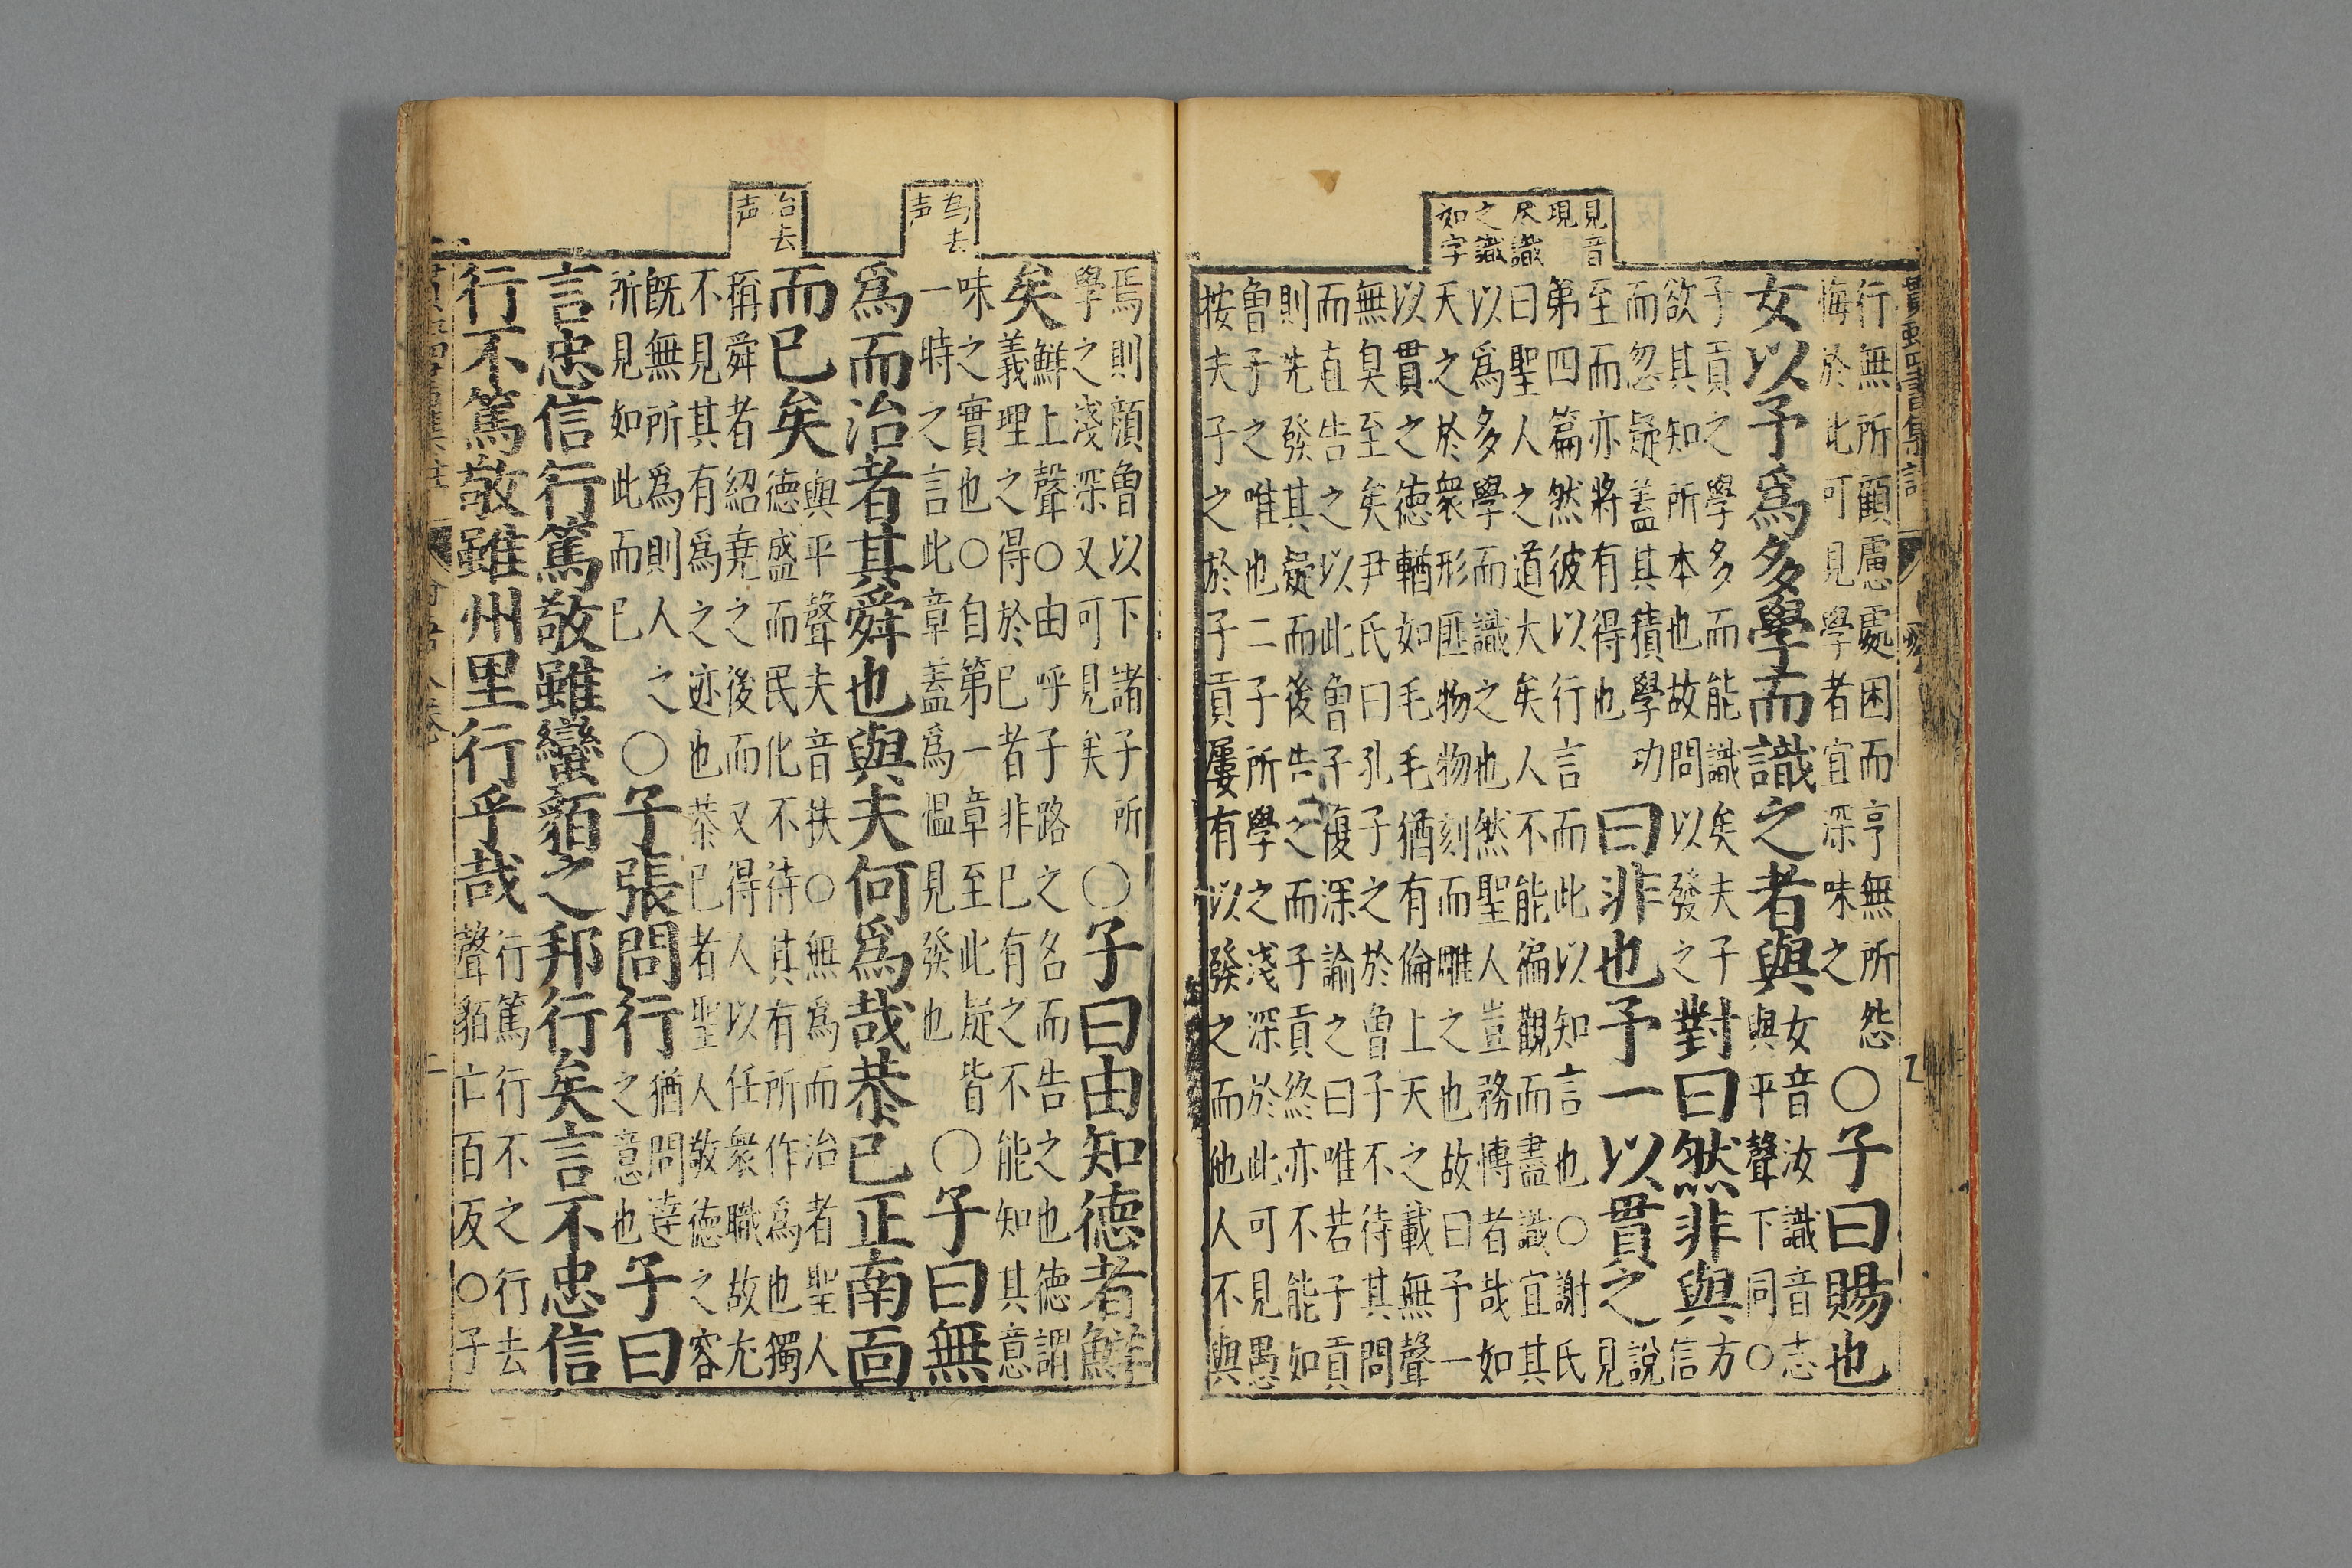 見音
現
尽識
之識
如字
行無所顧慮處困而亨無所怨
悔於此可見學者宜深味之
○子曰賜也
女以予爲多學而識之者與
女音汝識音志
與平聲下同○
子貢之學多而能識矣夫子
欲其知所本也故問以發之
對曰然非與
方
信
而忽疑蓋其積學功
至而亦將有得也
曰非也予一以貫之
說
見
第四篇然彼以行言而此以知言也○謝氏
曰聖人之道大矣人不能徧觀而盡識宜其
以爲多學而識之也然聖人豈務博者哉如
天之於衆形匪物物刻而雕之也故曰予一
以貫之德輶如毛毛猶有倫上天之載無聲
無臭至矣尹氏曰孔子之於曾子不待其問
而直告之以此曾子復深諭之曰唯若子貢
則先發其疑而後告之而子貢終亦不能如
曾子之唯也二子所學之淺深於此可見愚
按夫子之於子貢屢有以發之而他人不與
爲去
声
治去
声
焉則顔曾以下諸子所
學之淺深又可見矣
○子曰由知德者鮮
矣
鮮上聲○由呼子路之名而告之也德謂
義理之得於己者非己有之不能知其意
味之實也○自第一章至此疑皆
一時之言此章蓋爲慍見發也
○子曰無
爲而治者其舜也與夫何爲哉恭己正南面
而已矣
與平聲夫音扶○無爲而治者聖人
德盛而民化不待其有所作爲也獨
稱舜者紹堯之後而又得人以任衆職故尤
不見其有爲之迹也恭己者聖人敬德之容
既無所爲則人之
所見如此而已
○子張問行
猶問達
之意也
子曰
言忠信行篤敬雖蠻貊之邦行矣言不忠信
行不篤敬雖州里行乎哉
行篤行不之行去
聲貊亡百反○子